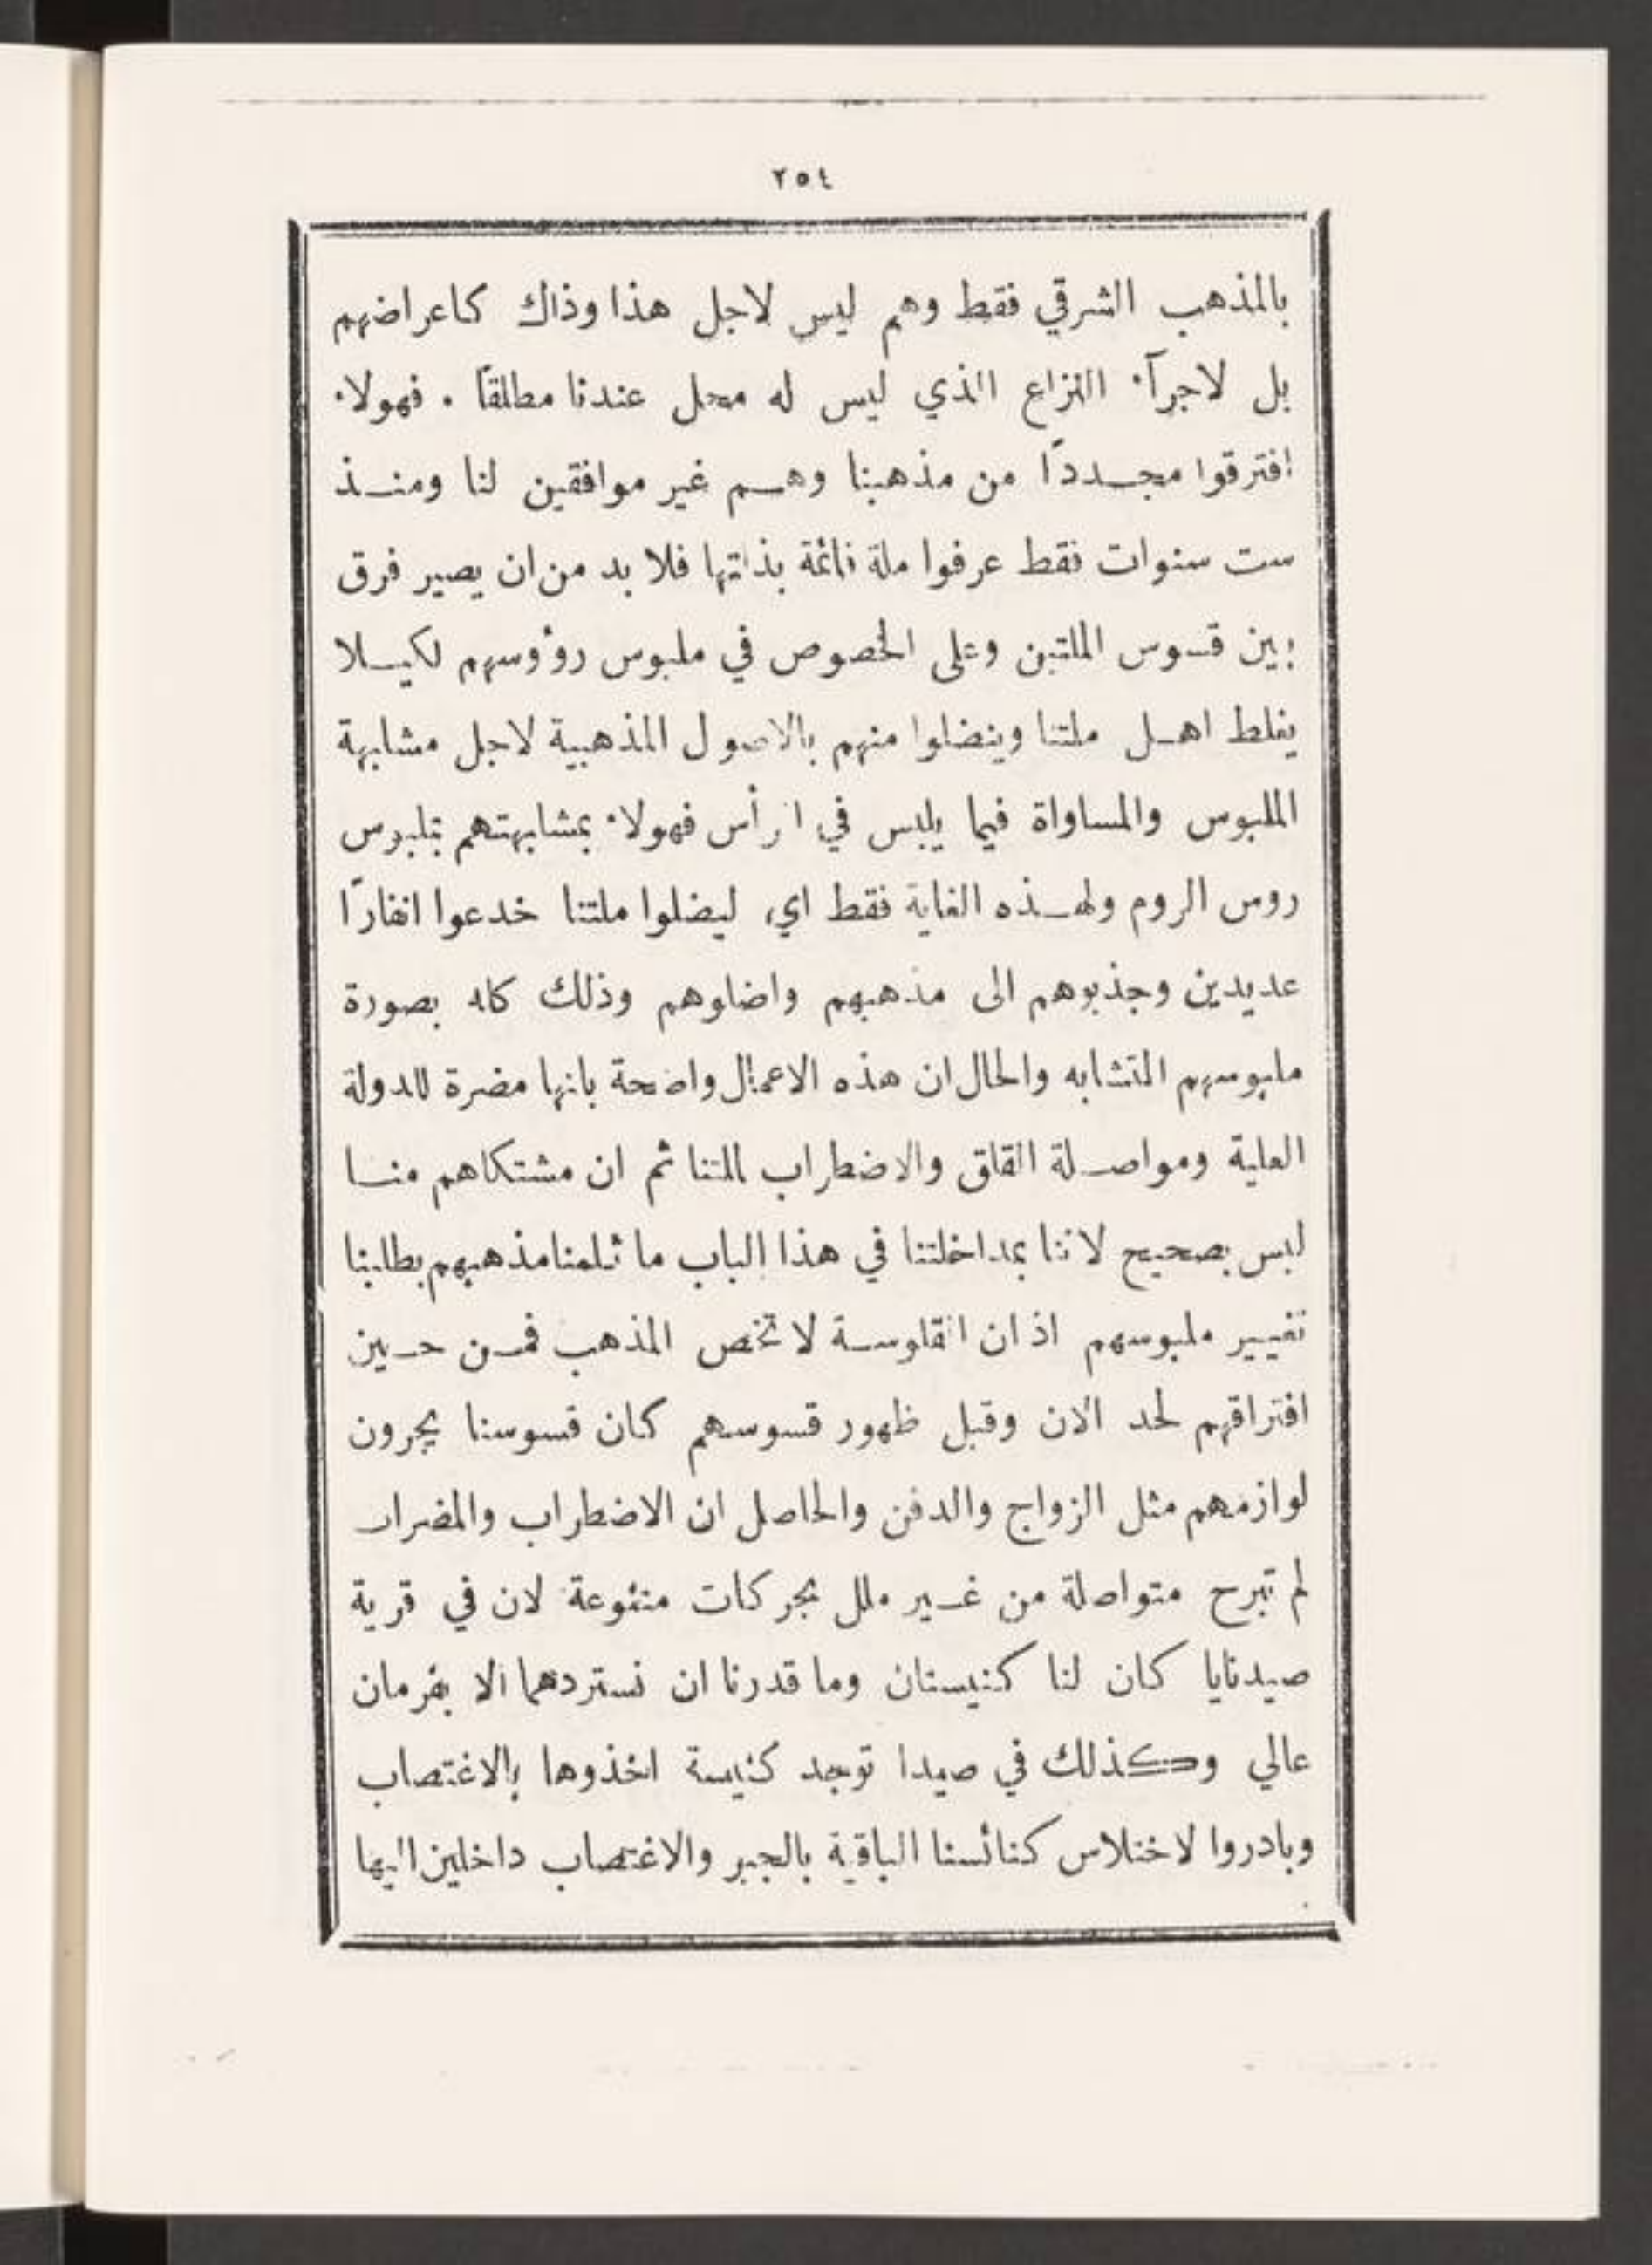 ٢٥٤
بالمذهب الشرقي فقط وهم ليس لاجل هذا وذاك كاعراضهم
بل لاجرآء النزاع الذي ليس له محل عندنا مطلقاً . فهولاء
افترقوا مجـدداً من مذهبنا وهـم غير موافقين لنا ومنـذ
ست سنوات فقط عرفوا ملة قائمة بذاتها فلا بد من ان يصير فرق
بين قسوس الملتين وعلى الخصوص في ملبوس روؤوسهم لكيـلا
يغلط اهـل ملتنا وينضلوا منهم بالاصول المذهبية لاجل مشابهة
الملبوس والمساواة فيما يلبس في الرأس فهولاء بمشابهتهم بملبوس
روس الروم ولهـذه الغاية فقط اي ليضلوا ملتنا خدعوا انفاراً
عديدين وجذبوهم الى مذهبهم واضلوهم وذلك كله بصورة
ملبوسهم المتشابه والحال ان هذه الاعمال واضحة بانها مضرة للدولة
العلية ومواصـلة القلق والاضطراب لملتنا ثم ان مشتكاهم منـا
ليس بصحيح لاننا بمداخلتنا في هذا الباب ما ثلمنا مذهبهم بطلبنا
تغيير ملبوسهم اذ ان القلوسـة لا تخص المذهب فمـن حـين
افتراقهم لحد الان وقبل ظهور قسوسهم كان قسوسنا يجرون
لوازمهم مثل الزواج والدفن والحاصل ان الاضطراب والمضرات
لم تبرح متواصلة من غـير ملل بحركات متنوعة لان في قرية
صيدنايا كان لنا كنيستان وما قدرنا ان نستردهما الا بفرمان
عالي وكذلك في صيدا توجد كنيسة اخذوها بالاغتصاب
وبادروا لاختلاس كنائسنا الباقية بالجبر والاغتصاب داخلين اليها